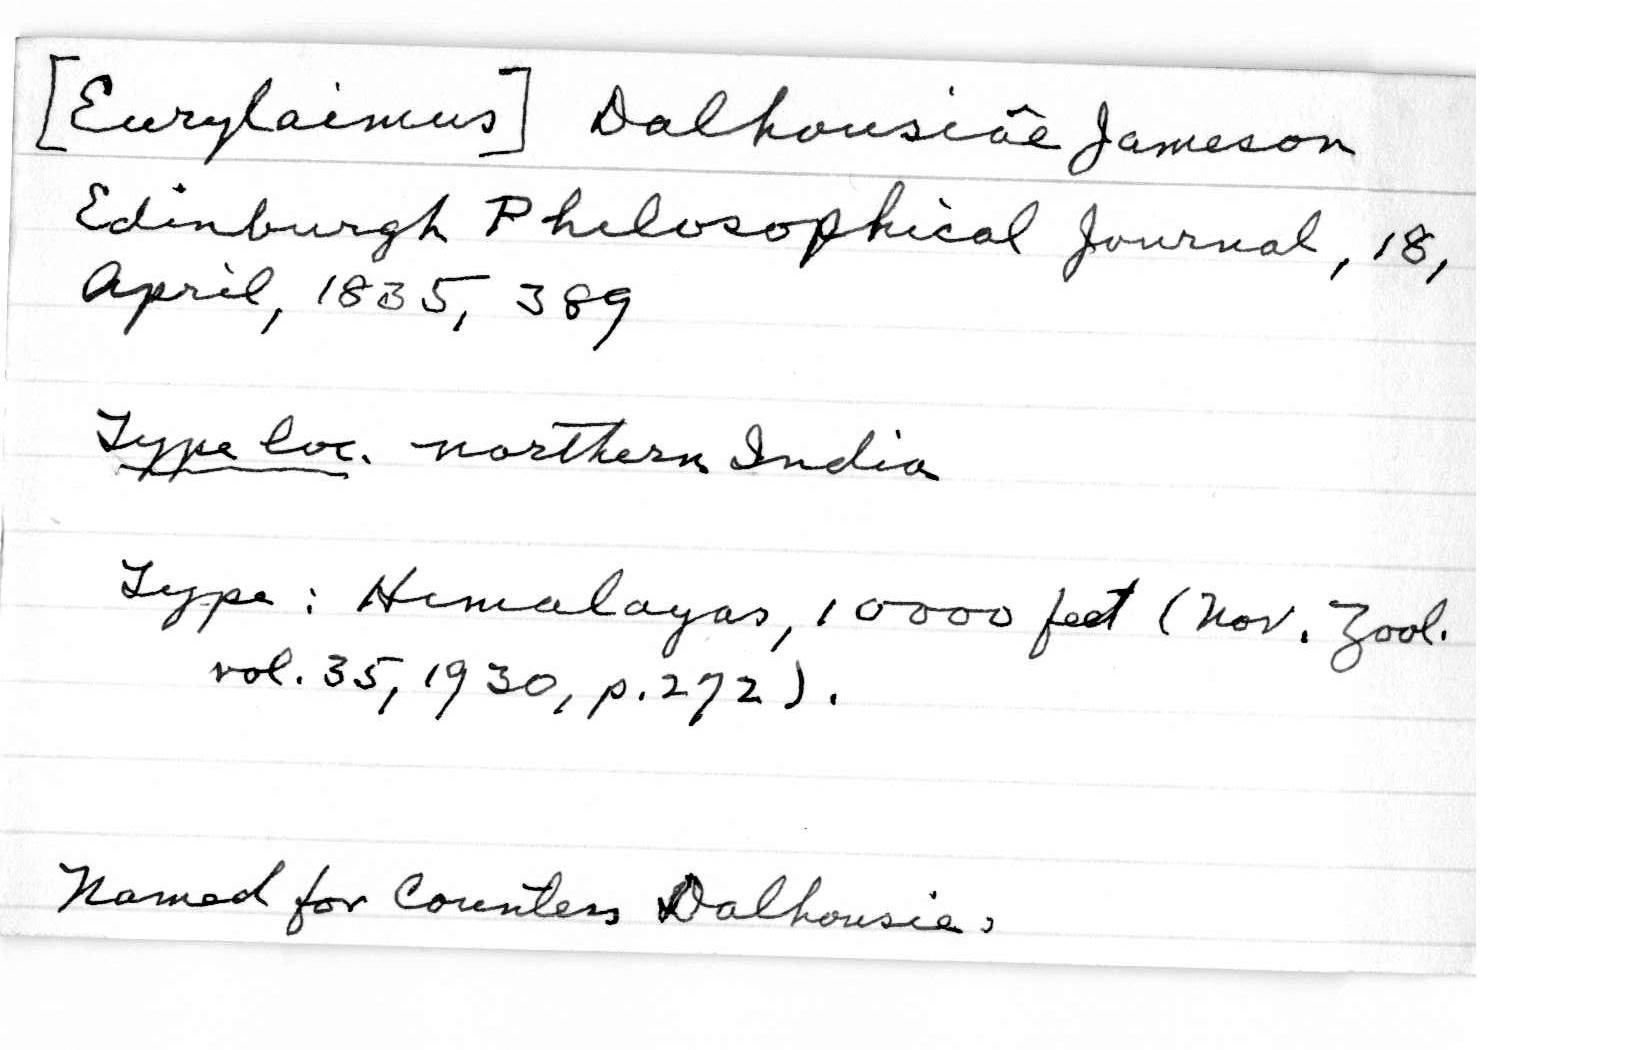 [Eurylaimus] Dalhousiae Jameson
Edinburgh Philosophical Journal, 18,
April, 1835, 389
Type loc. northern India
Type: Himalayas, 10000 feet (Nov. Zool.
vol. 35, 1930, p. 272).
Named for Countess Dalhousie.